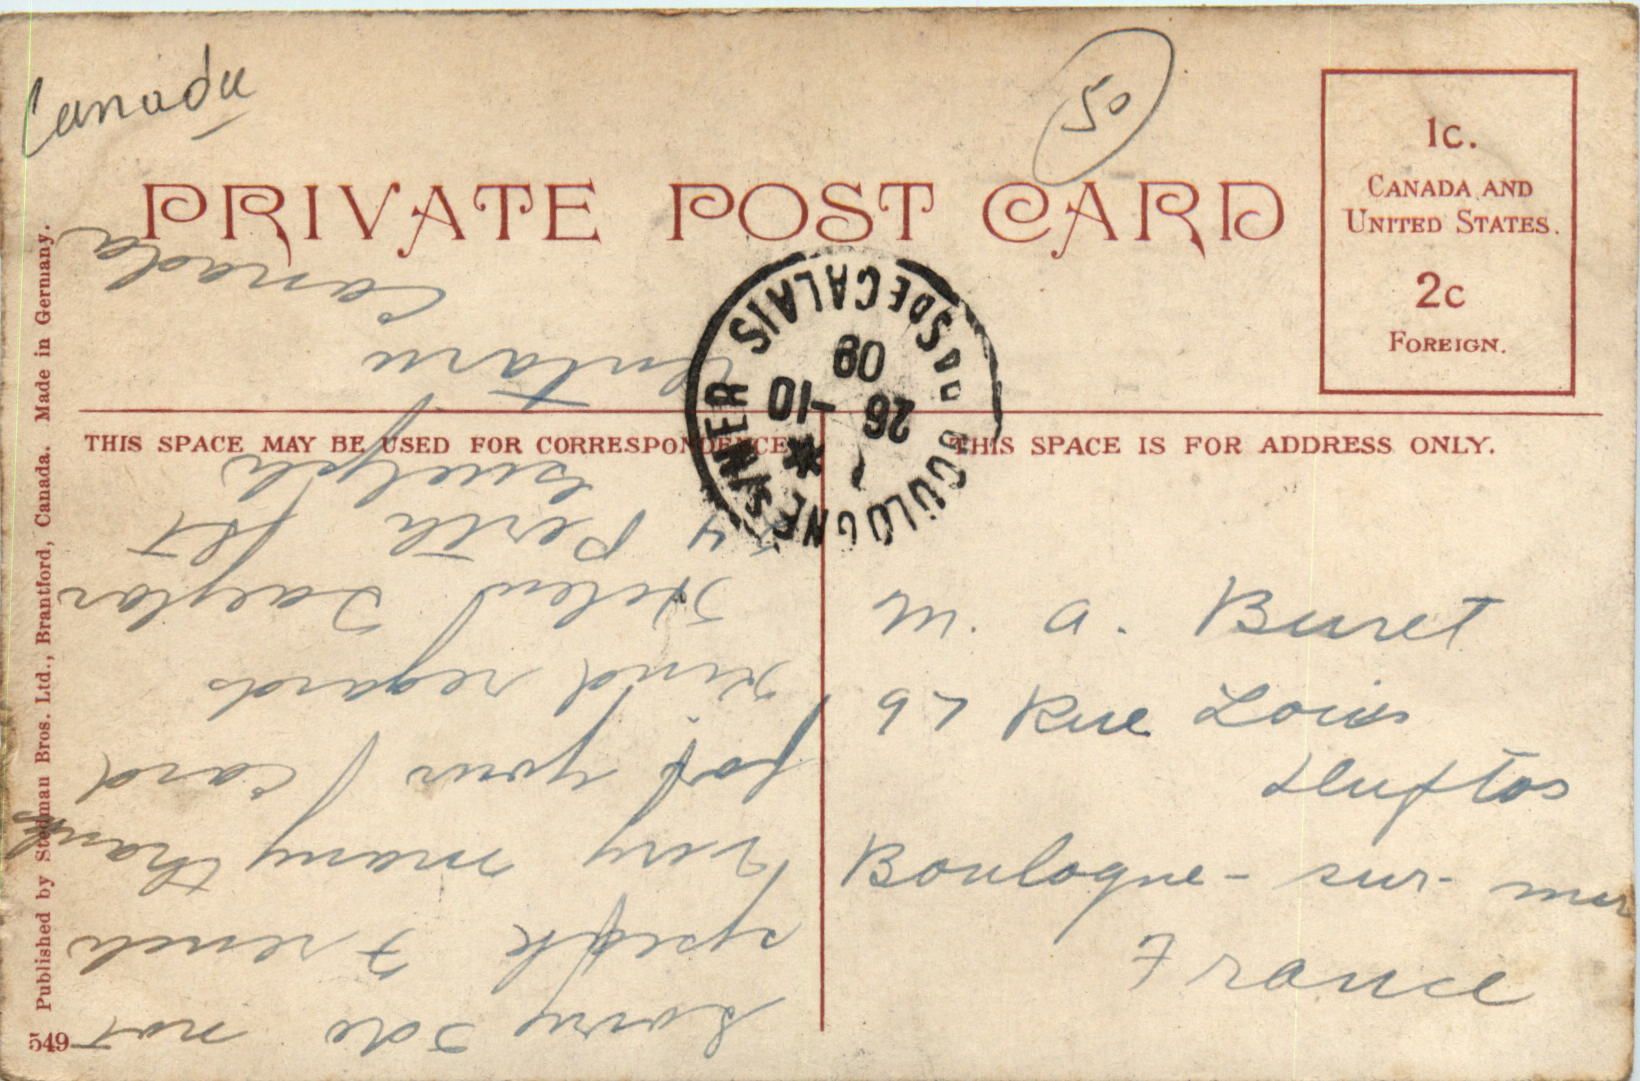 Canada
50
PRIVATE POST CARD
1c.
CANADA AND
UNITED STATES.
2c
FOREIGN.
THIS SPACE MAY BE USED FOR CORRESPONDENCE
THIS SPACE IS FOR ADDRESS ONLY.
BOULOGNE S/MER
PAS DE CALAIS
26 -10
09
M. A. Buret
97 Rue Louis
Duflos
Boulogne - sur - mer
France
Sorry I do not
speak French
Very many thanks
for your card
Kind regards
Helen Taylor
Perth St
Guelph
Ontario
Canada
Published by Stedman Bros. Ltd., Brantford, Canada. Made in Germany.
549